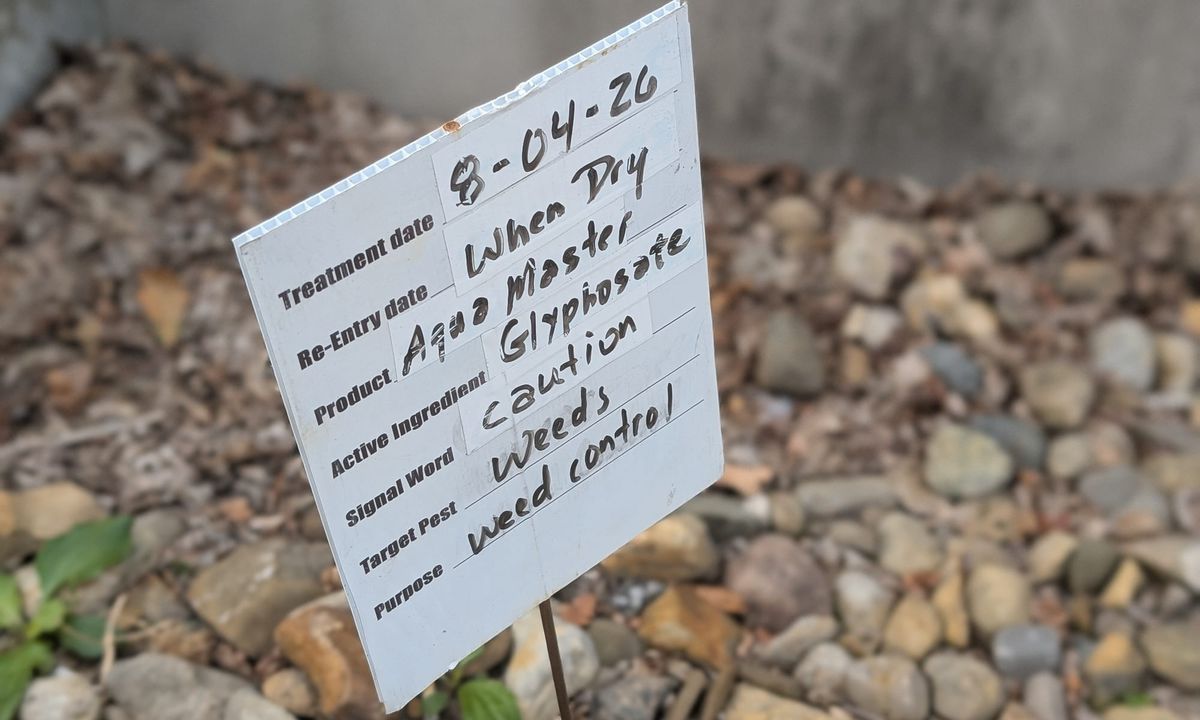 Treatment date 8-04-26
Re-Entry date When Dry
Product Aqua Master
Active Ingredient Glyphosate
Signal Word caution
Target Pest weeds
Purpose weed control